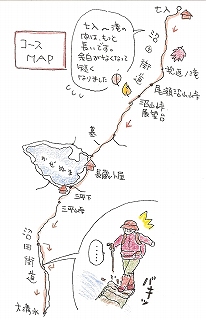 コース
MAP
七入
七入〜滝の
間は、もっと
長いです。
余白がなくなって
短く
なりました
沼田街道
抱返ノ滝
尾瀬沼山峠
沼山峠
展望台
墓
おぜぬま
長蔵小屋
三平下
三平峠
沼田街道
大清水
……
バキッ